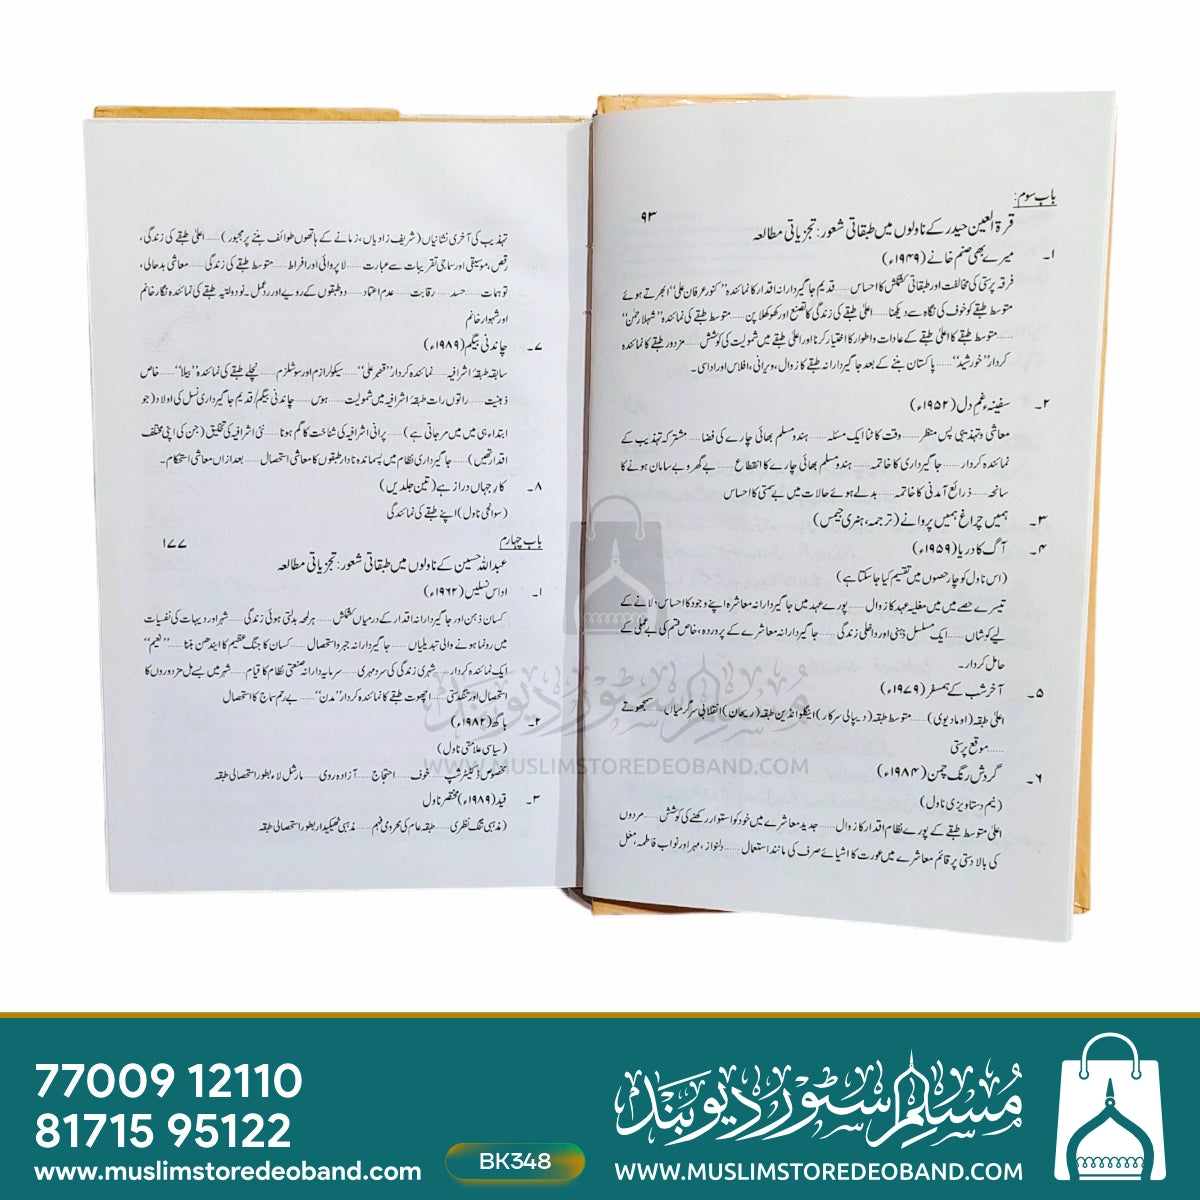 باب سوم:
قرۃ العین حیدر کے ناولوں میں طبقاتی شعور: تجزیاتی مطالعہ ۹۳
۱۔ میرے بھی صنم خانے (۱۹۴۹ء)
فرقہ پرستی کی مخالفت اور طبقاتی کشمکش کا احساس......قدیم جاگیردارانہ اقدار کا نمائندہ "کنور عرفان علی" ابھرتے ہوئے
متوسط طبقے کو خوف کی نگاہ سے دیکھنا......اعلیٰ طبقے کی زندگی کا تصنع اور کھوکھلا پن......متوسط طبقے کی نمائندہ "شہلا رحمٰن"
......متوسط طبقے کا اعلیٰ طبقے کے عادات و اطوار کا اختیار کرنا اور اعلیٰ طبقے میں شمولیت کی کوشش......مزدور طبقے کا نمائندہ
کردار "خورشید"......پاکستان بننے کے بعد جاگیردارانہ طبقے کا زوال، ویرانی، افلاس اور اداسی۔
۲۔ سفینۂ غمِ دل (۱۹۵۲ء)
معاشی و تہذیبی پس منظر......وقت کا فنا ایک مسئلہ......ہندو مسلم بھائی چارے کی فضا......مشترکہ تہذیب کے
نمائندہ کردار......جاگیرداری کا خاتمہ......ہندو مسلم بھائی چارے کا انقطاع......بے گھر و بے سامان ہونے کا
سانحہ......ذرائع آمدنی کا خاتمہ......بدلے ہوئے حالات میں بے سمتی کا احساس
۳۔ ہمیں چراغ ہمیں پروانے (ترجمہ، ہنری جیمس)
۴۔ آگ کا دریا (۱۹۵۹ء)
(اس ناول کو چار حصوں میں تقسیم کیا جا سکتا ہے)
تیسرے حصے میں میں مغلیہ عہد کا زوال......پورے عہد میں جاگیردارانہ معاشرہ اپنے وجود کا احساس دلانے کے
لیے کوشاں......ایک مسلسل ذہنی اور داخلی زندگی......جاگیردارانہ معاشرے کے پروردہ، خاص قسم کی بے عملی کے
حامل کردار۔
۵۔ آخر شب کے ہمسفر (۱۹۷۹ء)
اعلیٰ طبقہ (اوما دیوی)......متوسط طبقہ (دیپالی سرکار) اینگلو انڈین طبقہ (ریحان) انقلابی سرگرمیاں......سمجھوتے
......موقع پرستی
۶۔ گردش رنگ چمن (۱۹۸۴ء)
(نیم دستاویزی ناول)
اعلیٰ متوسط طبقے کے پورے نظام اقدار کا زوال......جدید معاشرے میں خود کو استوار رکھنے کی کوشش......مردوں
کی بالادستی پر قائم معاشرے میں عورت کا اشیائے صرف کی مانند استعمال......دلنواز، مہرو اور نواب فاطمہ، مغل
تہذیب کی آخری نشانیاں (شریف زادیاں، زمانے کے ہاتھوں طوائف بننے پر مجبور)......اعلیٰ طبقے کی زندگی،
رقص، موسیقی اور سماجی تقریبات سے عبارت......لا پروائی اور افراط......متوسط طبقے کی زندگی......معاشی بدحالی،
توہمات......حسد......رقابت......عدم اعتماد......دو طبقوں کے رویے اور ردِعمل۔ نو دولتیہ طبقے کی نمائندہ نگار خانم
اور شہوار خانم
۷۔ چاندنی بیگم (۱۹۸۹ء)
سابقہ طبقۂ اشرافیہ......نمائندہ کردار "قنبر علی"......سیکولرازم اور سوشلزم......نچلے طبقے کی نمائندہ "بیلا"......خاص
ذہنیت......راتوں رات طبقۂ اشرافیہ میں شمولیت......ہوس......چاندنی بیگم/قدیم جاگیرداری نسل کی اولاد (جو
ابتداء ہی میں مر جاتی ہے)......پرانی اشرافیہ کی شناخت کا گم ہونا......نئی اشرافیہ کی تخلیق (جن کی اپنی مختلف
اقدار تھیں)......جاگیرداری نظام میں پسماندہ نادار طبقوں کا معاشی استحصال......بعد ازاں معاشی استحکام۔
۸۔ کار جہاں دراز ہے (تین جلدیں)
(سوانحی ناول) اپنے طبقے کی نمائندگی
باب چہارم ۱۷۷
عبداللہ حسین کے ناولوں میں طبقاتی شعور: تجزیاتی مطالعہ
۱۔ اداس نسلیں (۱۹۶۳ء)
کسان ذہن اور جاگیردارانہ اقدار کے درمیاں کشمکش......ہر لمحہ بدلتی ہوئی زندگی......شہر اور دیہات کی نفسیات
میں رونما ہونے والی تبدیلیاں......جاگیردارانہ جبر و استحصال......کسان کا جنگ عظیم کا ایندھن بننا......"نعیم"
ایک نمائندہ کردار......شہری زندگی کی سرد مہری......سرمایہ دارانہ صنعتی نظام کا قیام......شہر میں بسے مل مزدوروں کا
استحصال اور تنگدستی......اچھوت طبقے کا نمائندہ کردار "مدن"......بے رحم سماج کا استحصال
۲۔ باگھ (۱۹۸۲ء)
(سیاسی علامتی ناول)
مخصوص ڈکٹیٹرشپ......خوف......احتجاج......آزادہ روی......مارشل لاء بطور استحصالی طبقہ
۳۔ قید (۱۹۸۹ء) مختصر ناول
(مذہبی تنگ نظری......طبقہ عام کی محرومی فہم......مذہبی ٹھیکیدار بطور استحصالی طبقہ
مسلم سٹور دیوبند
WWW.MUSLIMSTOREDEOBAND.COM
77009 12110
81715 95122
www.muslimstoredeoband.com
BK348
مسلم سٹور دیوبند
WWW.MUSLIMSTOREDEOBAND.COM